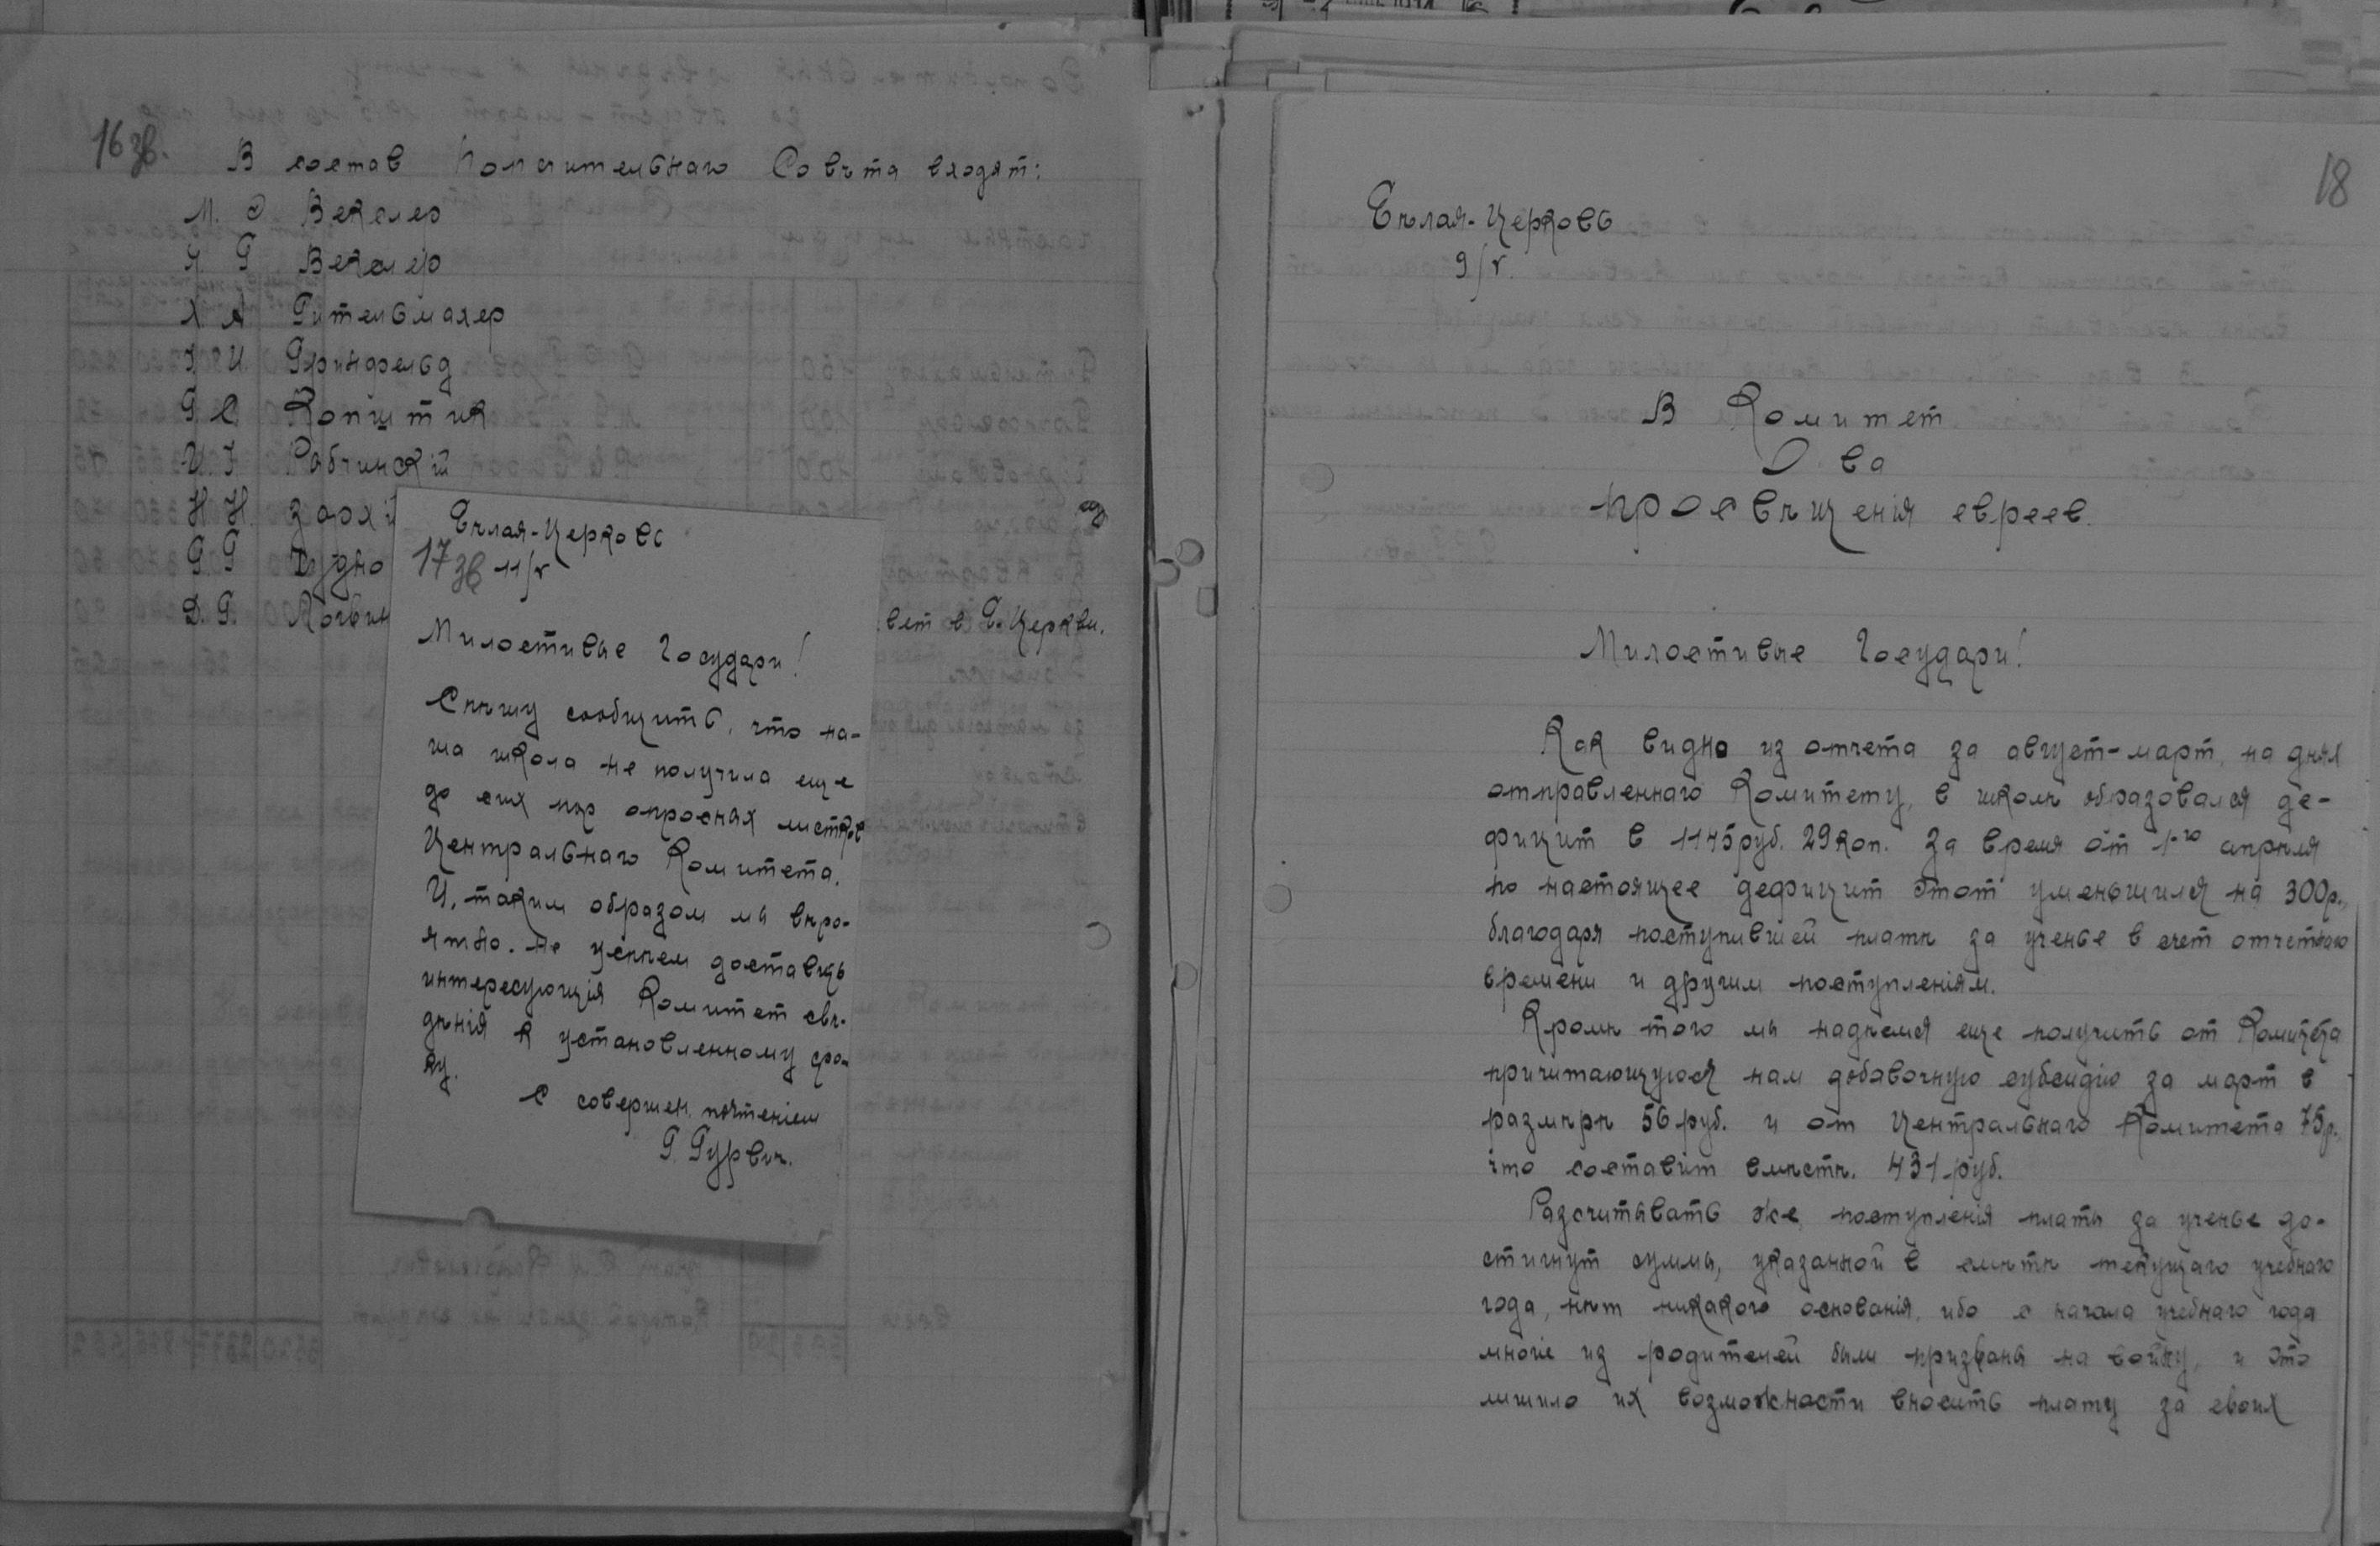 16 зв.
В состав Попечительнаго Совѣта входят:
М. Э Векслер
Я Г Векслер
Х А Гительмахер
І И Гринфельд
Г С Копштик
И. І. Рабчинскій
Н. Н. Зархі
Г. Г. Дудно
Д. Г. Логвин
вет в Б. Церкви.
Бѣлая-Церковь
17 зв 11/V
Милостивые Государи!
Спѣшу сообщить, что на-
ша школа не получила еще
до сих пор опросных листков
Центральнаго Комитета.
И, таким образом мы вѣро-
ятно не успѣем доставить
интересующія Комитет свѣ-
дѣнія к установленному сро-
ку.
С совершен. почтеніем
Г. Гурвич.
18
Бѣлая-Церковь
9/V.
В Комитет
О-ва
просвѣщенія евреев.
Милостивые Государи!
Как видно из отчета за август-март, на днях
отправленнаго Комитету, в школѣ образовался де-
фицит в 1145 руб. 29 коп. За время от 1-го апрѣля
по настоящее дефицит этот уменьшился на 300 р.,
благодаря поступившей платѣ за ученье в счет отчетнаго
времени и другим поступленіям.
Кромѣ того мы надѣемся еще получить от Комитета
причитающуюся нам добавочную субсидію за март в
размѣрѣ 56 руб. и от Центральнаго Комитета 75 р.,
что составит вмѣстѣ 431 руб.
Разсчитывать же, поступленія платы за ученье до-
стигнут суммы, указанной в смѣтѣ текущаго учебнаго
года, нѣт никакого основанія, ибо с начала учебнаго года
многіе из родителей были призваны на войну, и это
лишило их возможности вносить плату за своих